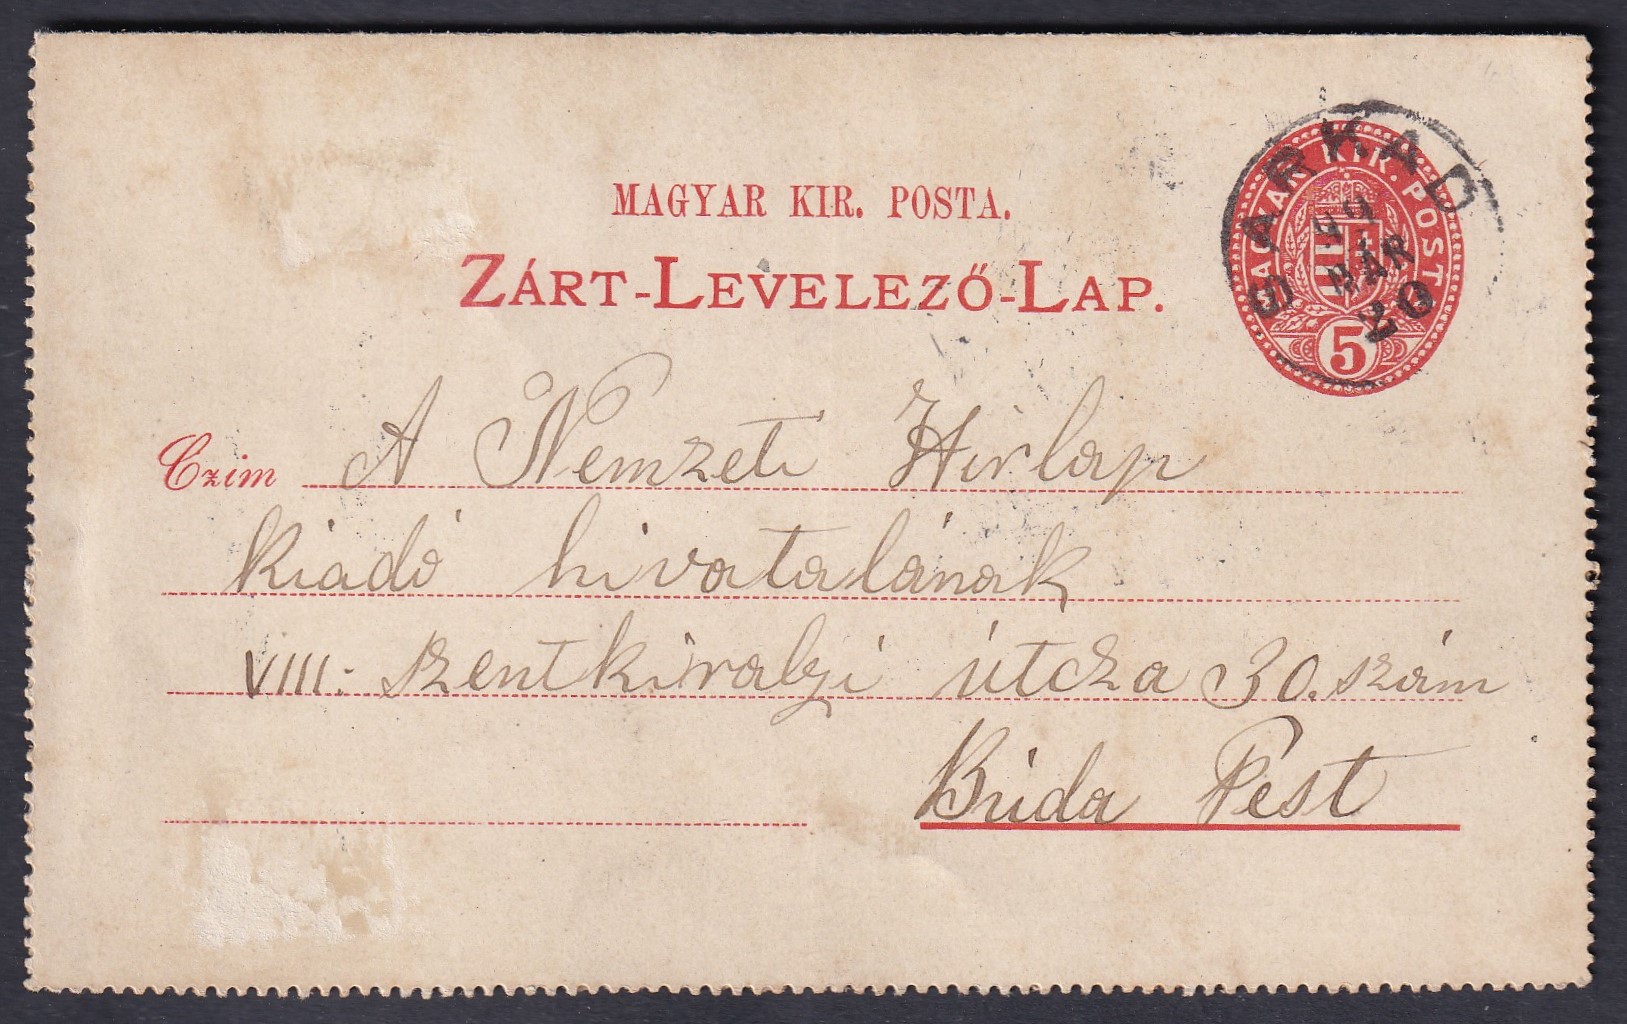 MAGYAR KIR. POSTA.
ZÁRT-LEVELEZŐ-LAP.
MAGYAR KIR. POSTA
5
SARKAD
MÁR
20
Czim A Nemzeti Hirlap
kiadó hivatalának
VIII: szentkiralyi útcza 30. szám
Búda Pest